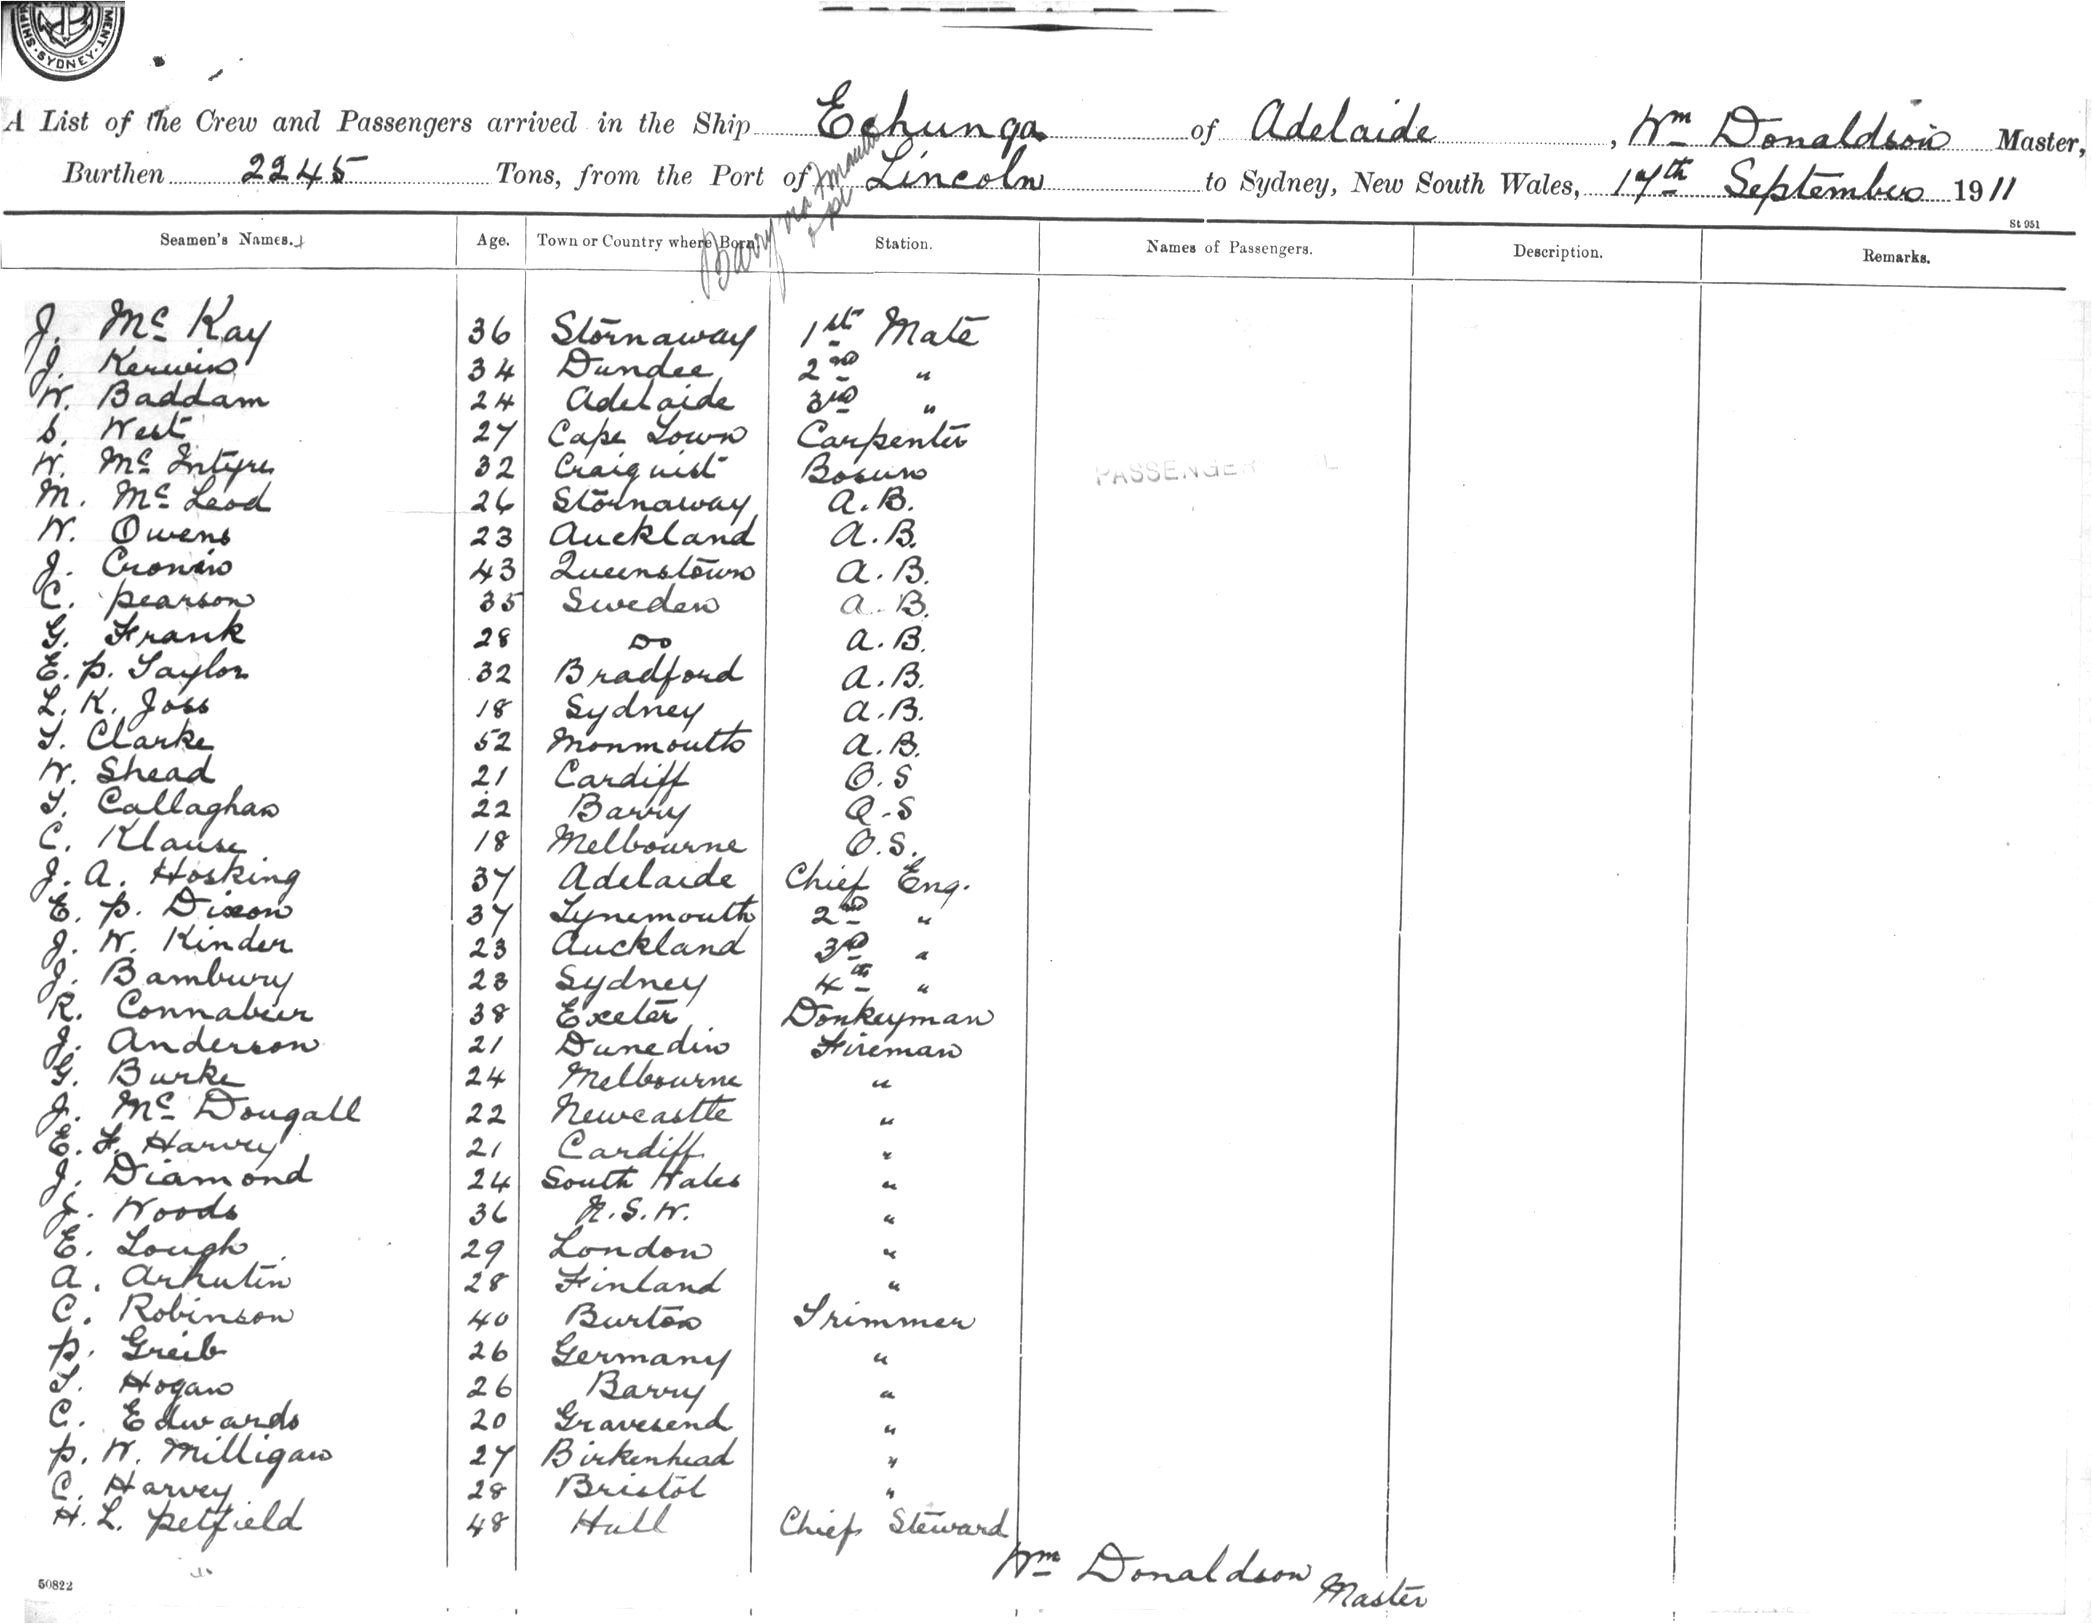 MENT · SYDNEY · SHIP
A List of the Crew and Passengers arrived in the Ship Echunga of Adelaide, Wm Donaldson Master,
Burthen 2245 Tons, from the Port of Lincoln to Sydney, New South Wales, 17th September 1911
Barry via
St 951
Seamen's Names. Age. Town or Country where Born. Station. Names of Passengers. Description. Remarks.
J. McKay 36 Stornaway 1st Mate
J. Kerwin 34 Dundee 2nd "
W. Baddam 24 Adelaide 3rd "
S. West 27 Cape Town Carpenter
W. McIntyre 32 Craignist Bosun
PASSENGER
M. McLeod 26 Stornaway A.B.
W. Owens 23 Auckland A.B.
J. Cronin 43 Queenstown A.B.
C. Pearson 35 Sweden A.B.
G. Frank 28 Do A.B.
E. P. Taylor 32 Bradford A.B.
L. K. Joss 18 Sydney A.B.
T. Clarke 52 Monmouth A.B.
W. Shead 21 Cardiff O.S
T. Callaghan 22 Barry O.S
C. Klause 18 Melbourne O.S.
J. A. Hosking 37 Adelaide Chief Eng.
E. P. Dixon 37 Tynemouth 2nd "
J. W. Kinder 23 Auckland 3rd "
J. Bambury 23 Sydney 4th "
R. Connabeer 38 Exeter Donkeyman
J. Anderson 21 Dunedin Fireman
G. Burke 24 Melbourne "
J. McDougall 22 Newcastle "
E. F. Harvey 21 Cardiff "
J. Diamond 24 South Wales "
J. Woods 36 N.S.W. "
E. Lough 29 London "
A. Arhutin 28 Finland "
C. Robinson 40 Burton Trimmer
P. Greib 26 Germany "
T. Hogan 26 Barry "
C. Edwards 20 Gravesend "
P. W. Milligan 27 Birkenhead "
C. Harvey 28 Bristol "
H. L. Petfield 48 Hull Chief Steward
Wm Donaldson Master
50822